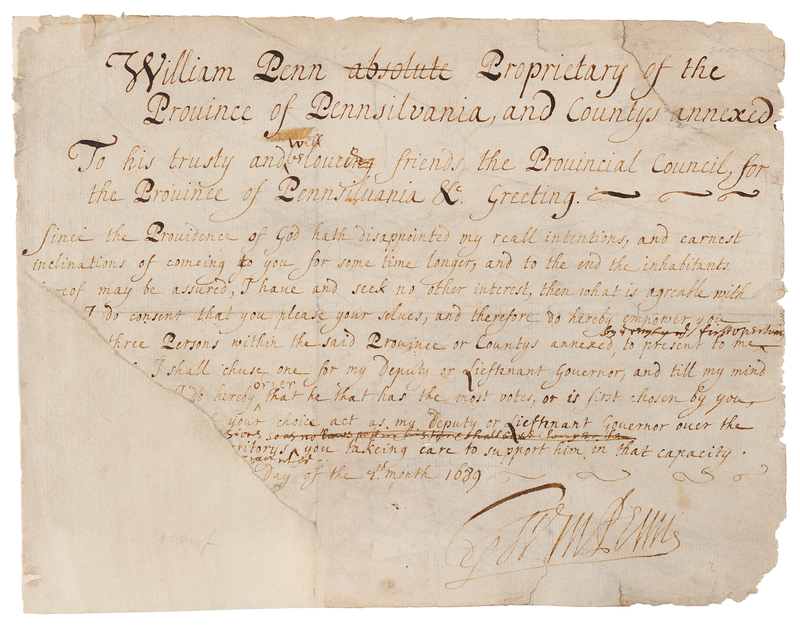 William Penn absolute Proprietary of the
Province of Pennsilvania, and Countys annexed.
well
To his trusty and beloveing friends the Provincial Council, for
the Province of Pennsylvania &c. Greeting.
Since the Providence of God hath disappointed my reall intentions, and earnest
inclinations of comeing to you for some time longer, and to the end the inhabitants
may be assured, I have and seek no other interest, then what is agreable with
I do consent that you please your selves, and therefore do hereby empower you
three Persons within the said Province or Countys annexed, to present to me
I shall chuse one for my Deputy or Lieftenant Governor, and till my mind
order
I do hereby that he that has the most votes, or is first chosen by you,
your choice act as my Deputy or Lieftenant Governor over the
you takeing care to support him in that capacity.
Day of the month 1689
Wm Penn